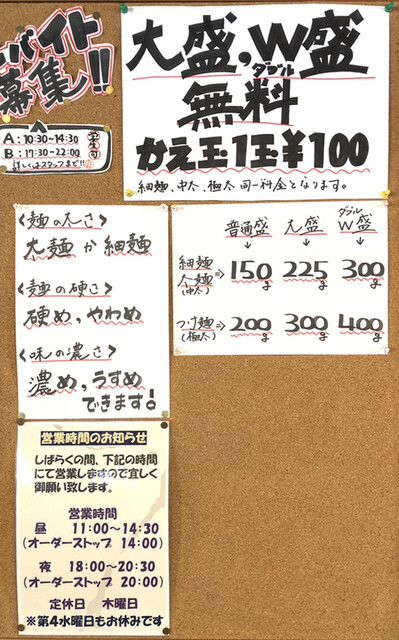 バイト
募集!!
A:10:30~14:30
B:17:30~22:00
学生可
詳しくはスタッフまで!!
大盛,W盛
ダブル
無料
かえ玉1玉¥100
細麺、中太、極太 同一料金となります。
<麺の太さ>
太麺か細麺
<麺の硬さ>
硬め,やわめ
<味の濃さ>
濃め,うすめ
できます!
普通盛 大盛 ダブルW盛
↓ ↓ ↓
細麺
太麺⇒150g 225g 300g
(中太)
つけ麺⇒200g 300g 400g
(極太)
営業時間のお知らせ
しばらくの間、下記の時間
にて営業しますので宜しく
御願い致します。
営業時間
昼 11:00~14:30
(オーダーストップ 14:00)
夜 18:00~20:30
(オーダーストップ 20:00)
定休日 木曜日
※第4水曜日もお休みです